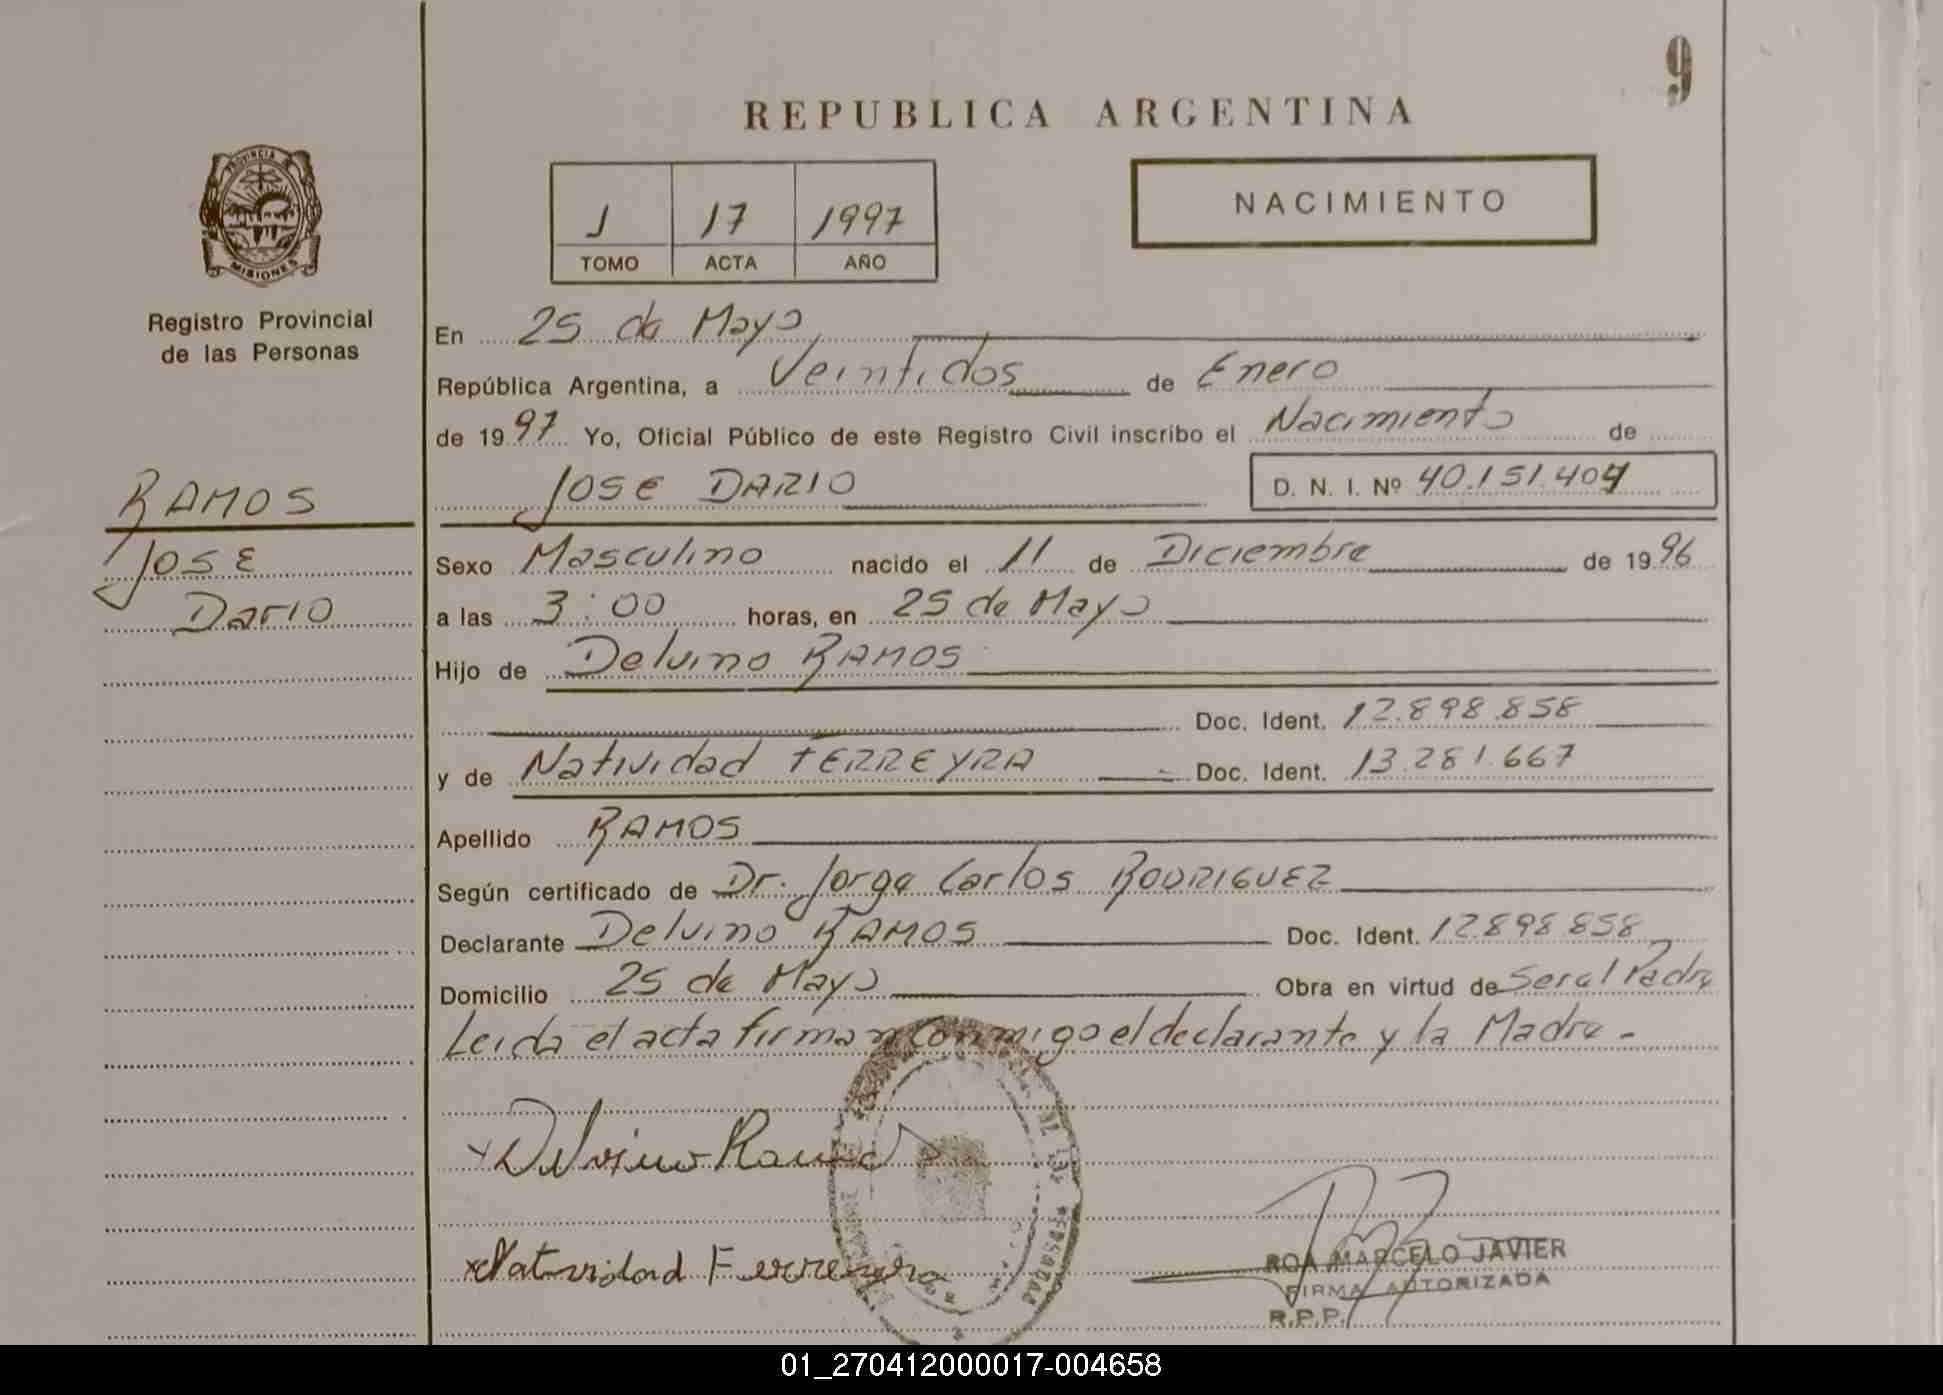 9
REPUBLICA ARGENTINA
PROVINCIA DE
MISIONES
1 17 1997
TOMO ACTA AÑO
NACIMIENTO
Registro Provincial
de las Personas
En 25 de Mayo
República Argentina, a Veintidos de Enero
de 1997 Yo, Oficial Público de este Registro Civil inscribo el Nacimiento de
JOSE DARIO D. N. I. Nº 40.151.404
RAMOS
JOSE
Dario
Sexo Masculino nacido el 11 de Diciembre de 1996
a las 3:00 horas, en 25 de Mayo
Hijo de Delvino RAMOS
Doc. Ident. 12.898.858
y de Natividad FERREYRA Doc. Ident. 13.281.667
Apellido RAMOS
Según certificado de Dr. Jorge Carlos RODRIGUEZ
Declarante Delvino RAMOS Doc. Ident. 12.898.858
Domicilio 25 de Mayo Obra en virtud de Ser el Padre
Leida el acta firman conmigo el declarante y la Madre.-
x Delvino Ramos
x Natividad Ferreyra
ROA MARCELO JAVIER
FIRMA AUTORIZADA
R.P.P.
01_270412000017-004658